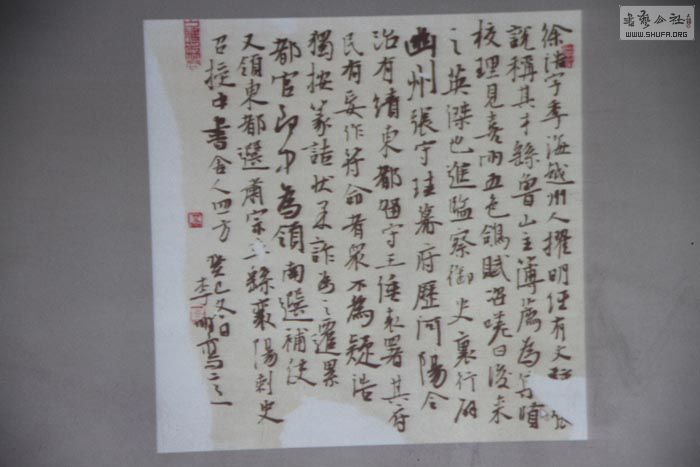 徐浩字季海越州人擢明经有文辞張
說稱其才繇魯山主薄薦為集賢
校理見喜雨五色鴿賦咨嗟曰後来
之英傑也進監察御史裏行辟
幽州張守珪幕府歷河陽令
治有績東都留守王倕表署其府
民有妄作符命者眾不為疑浩
獨按篆詰状果詐為之遷累
都官郎中為領南選補使
又領東都選肅宗立繇襄陽刺史
召授中書舍人四方 癸巳冬日
李
書藝公社
WWW.SHUFA.ORG